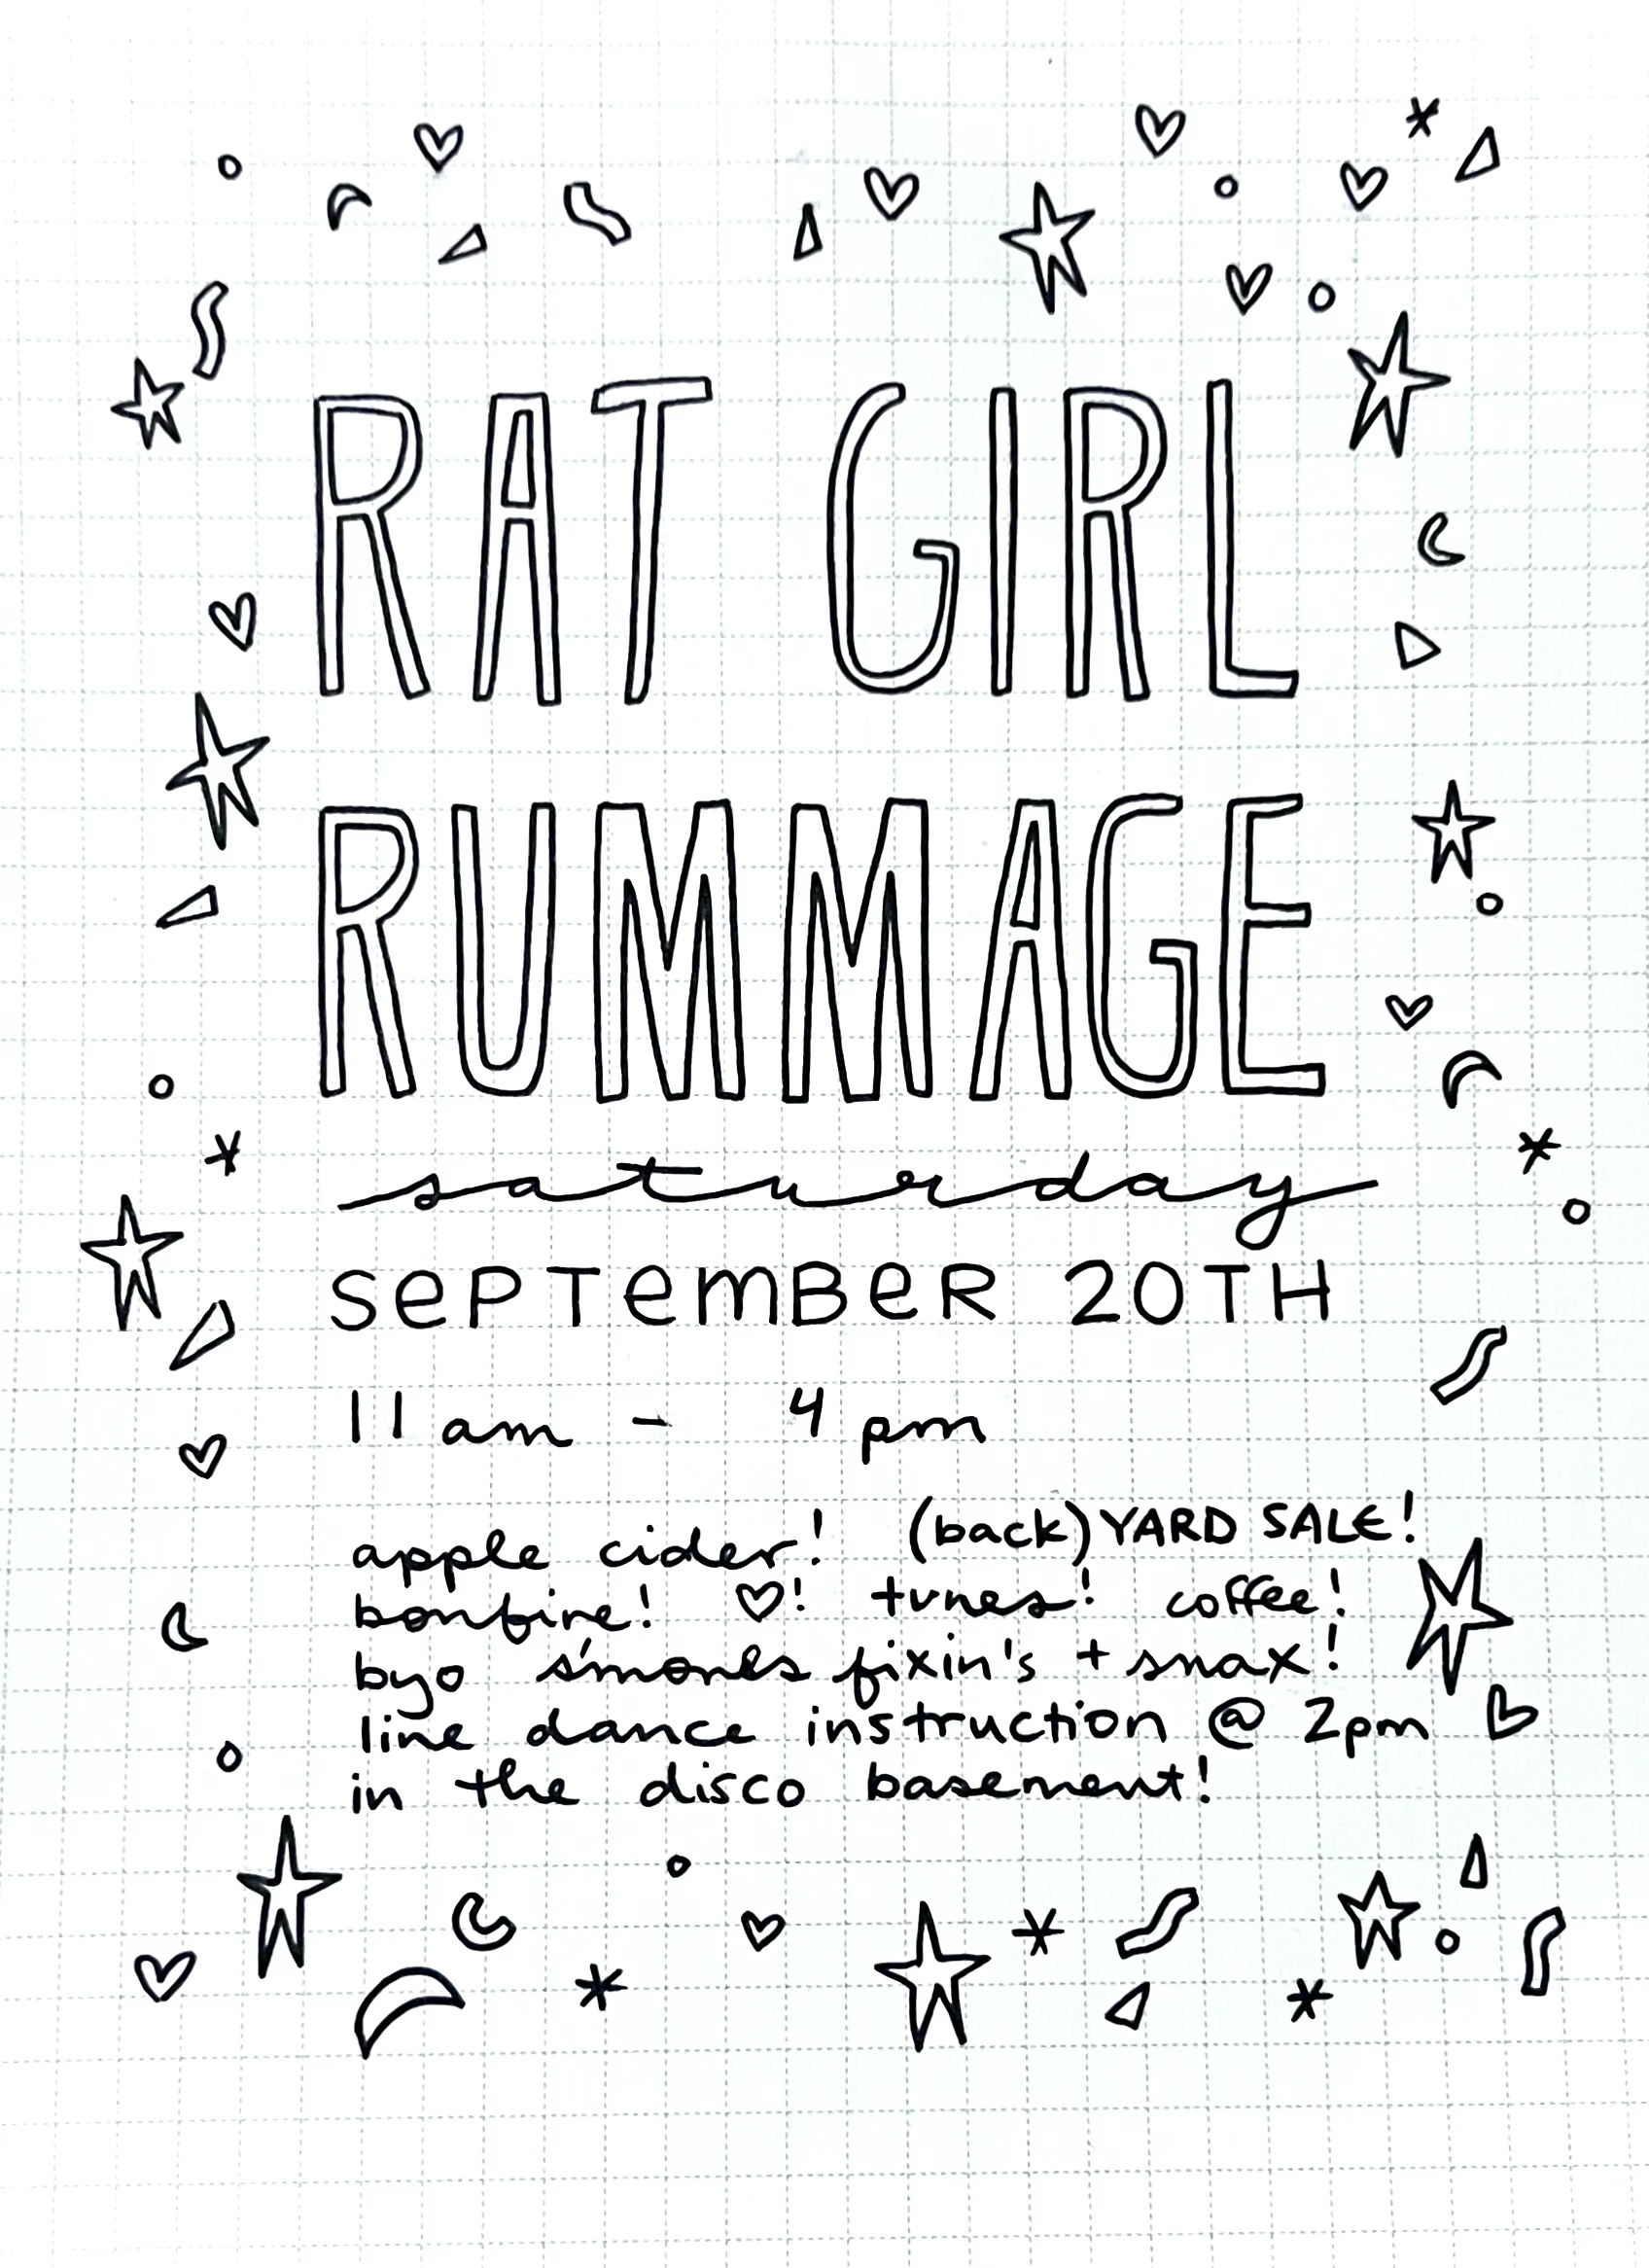 RAT GIRL
RUMMAGE
saturday
SEPTEMBER 20TH
11 am - 4 pm
apple cider! (back) YARD SALE!
bonfire! ♡! tunes! coffee!
byo s'mores fixin's + snax!
line dance instruction @ 2pm
in the disco basement!